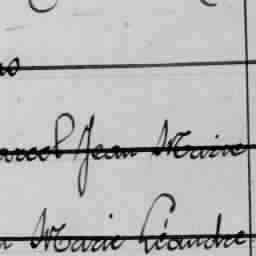 Marcel Jean Marie
Marie Léandre